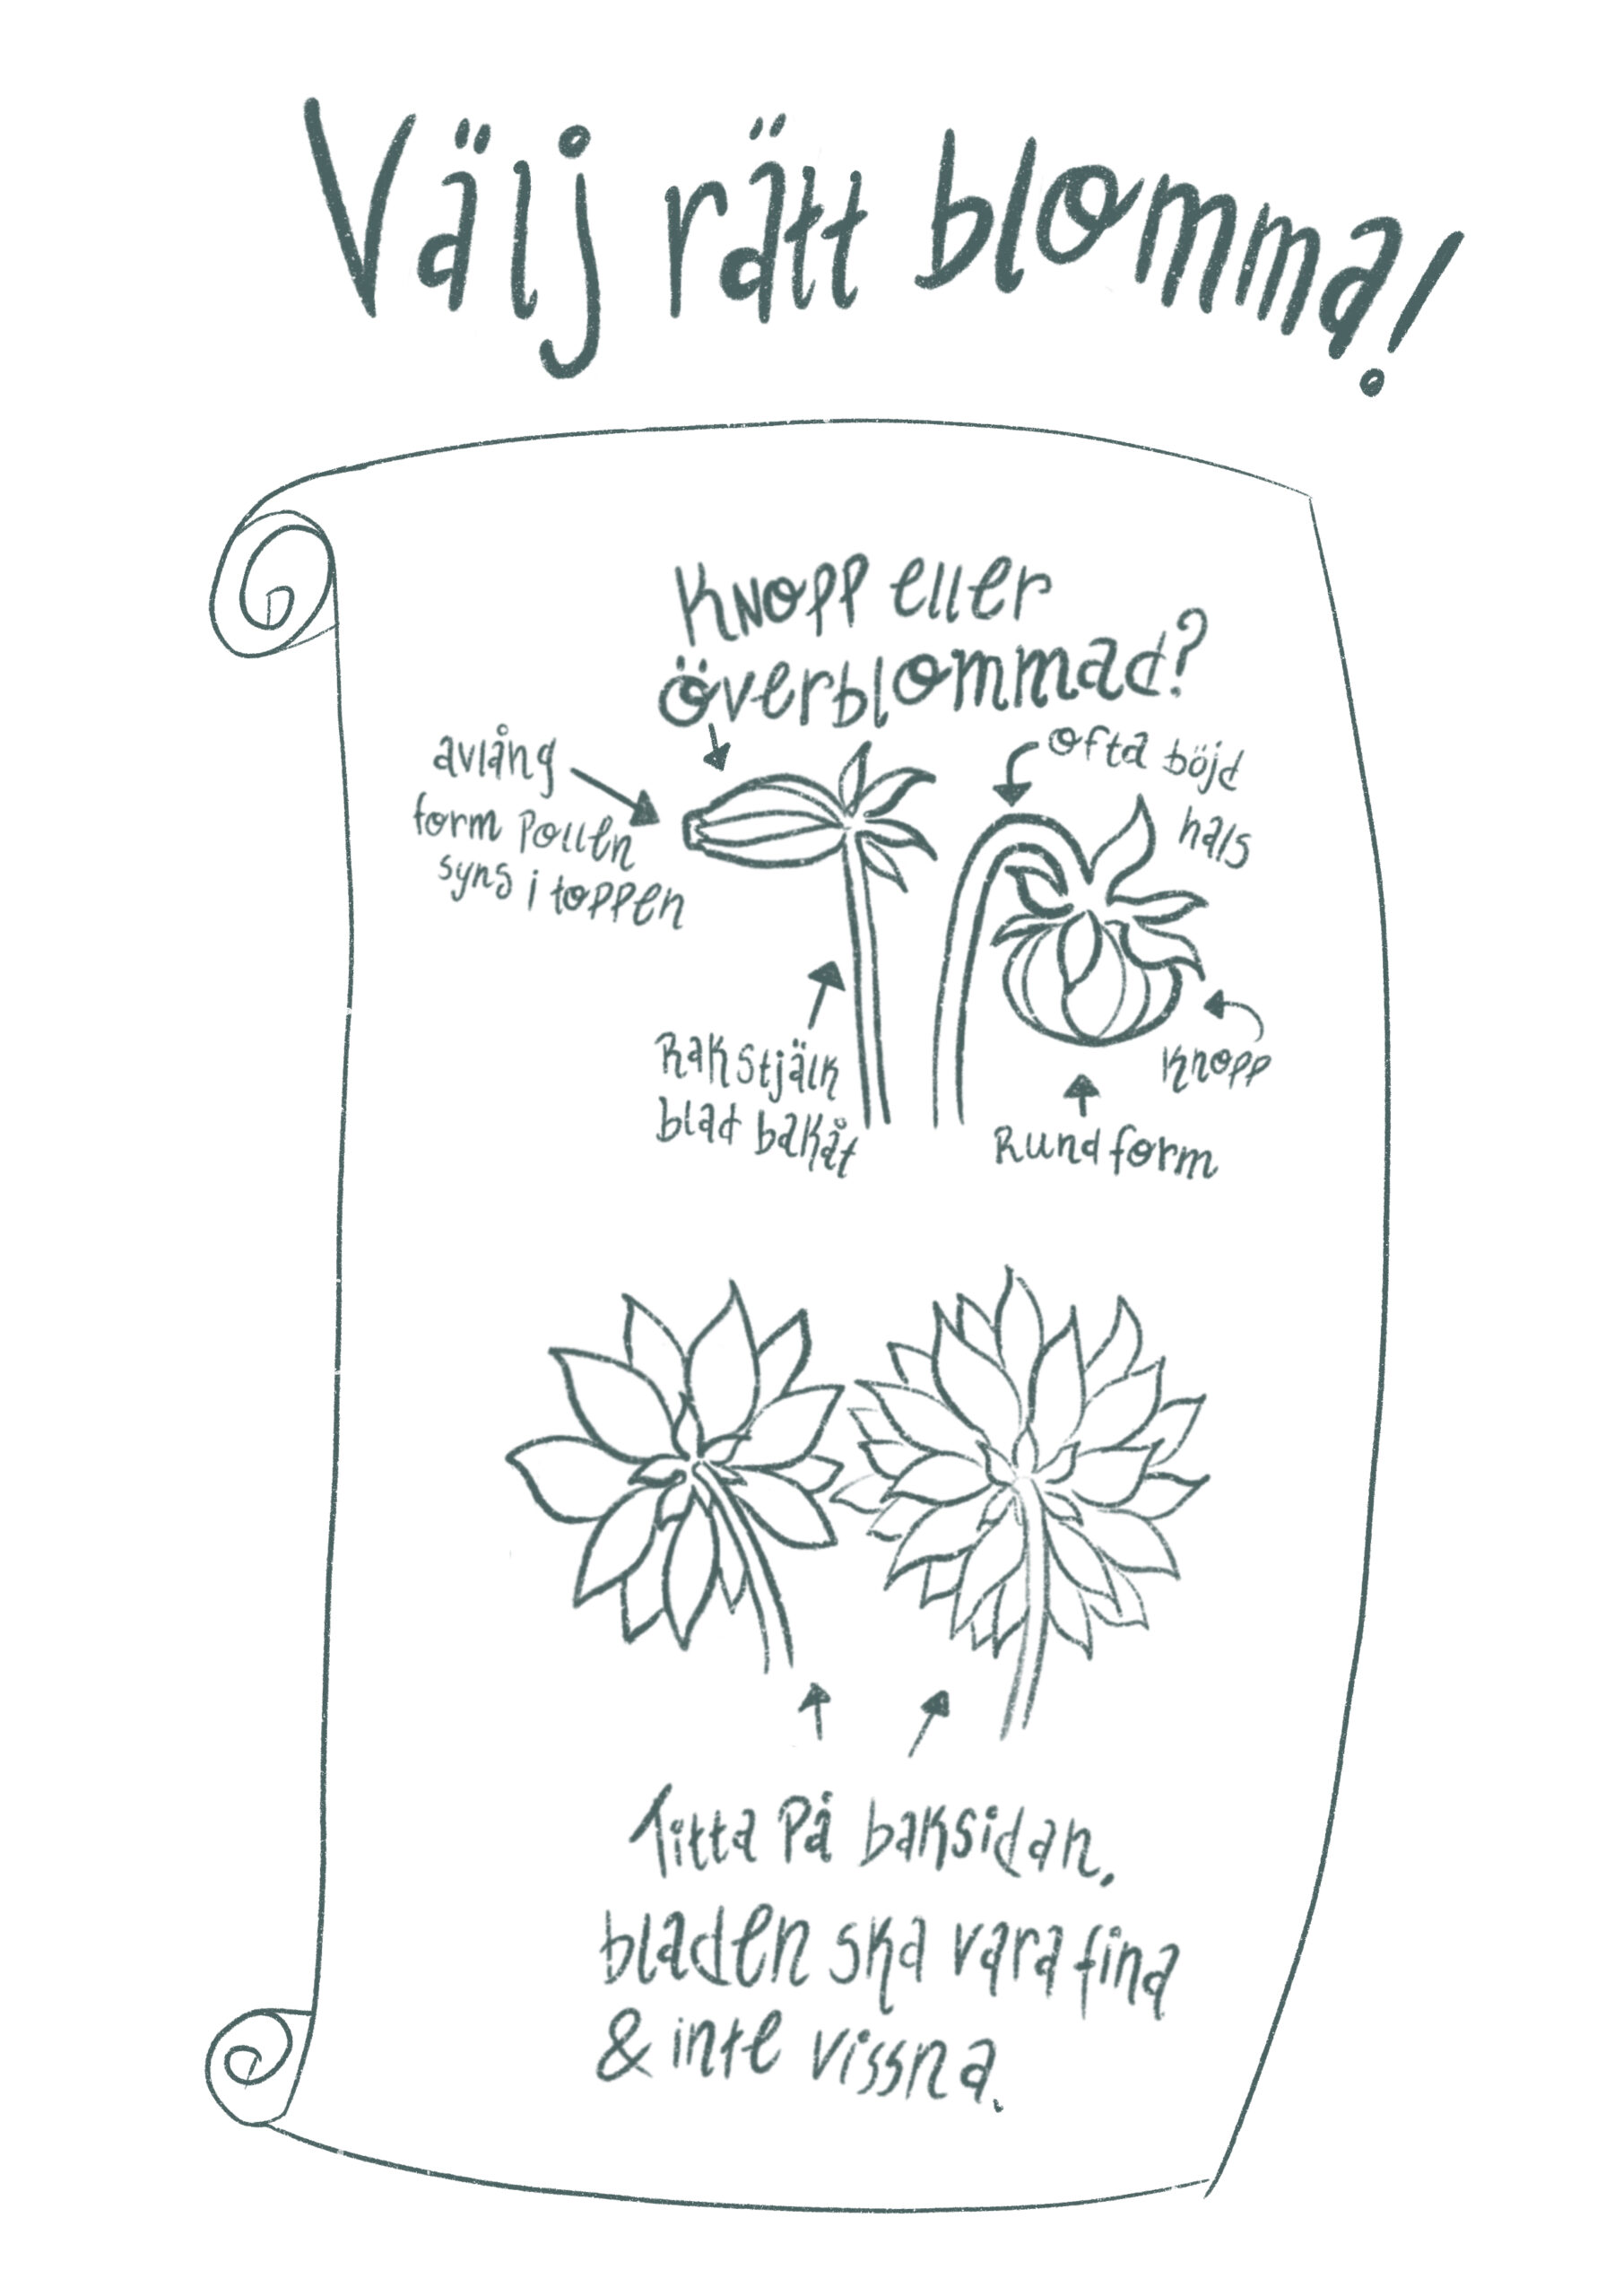 Välj rätt blomma!
Knopp eller
överblommad?
avlång
form Pollen
syns i toppen
ofta böjd
hals
Rak stjälk
blad bakåt
Knopp
Rund form
Titta På baksidan.
bladen ska vara fina
& inte vissna.